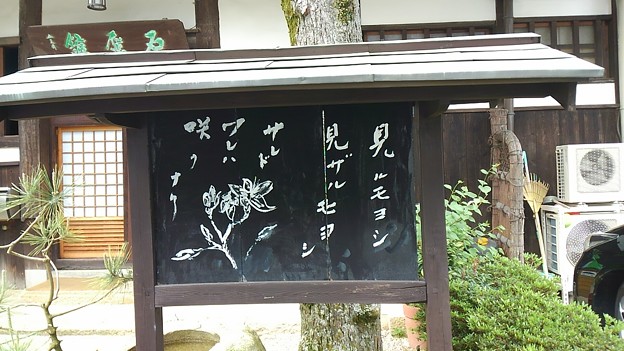 見ルモヨシ
見ザルモヨシ
サレド
ワレハ
咲クナリ